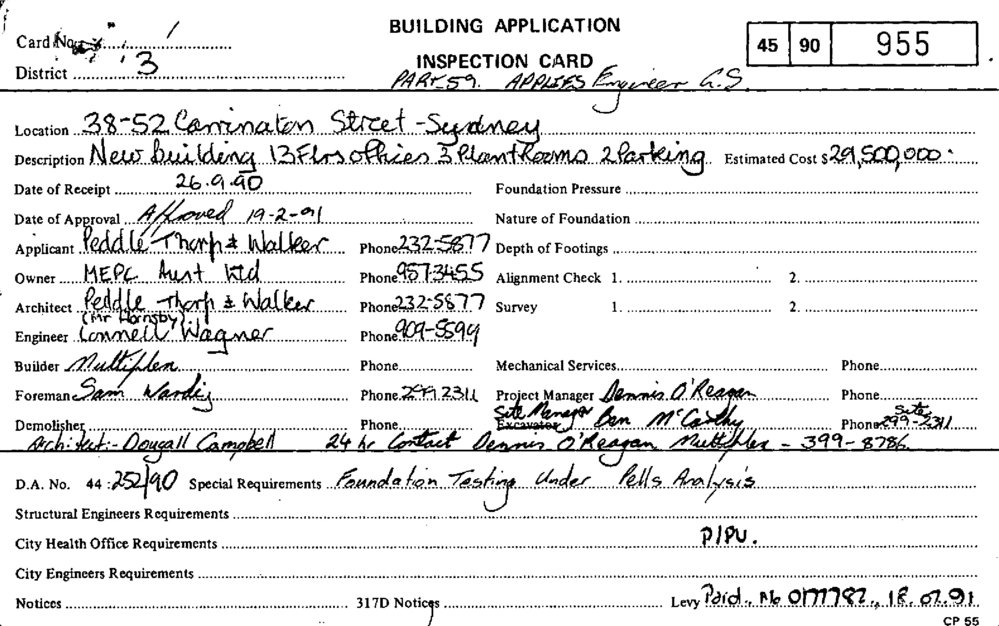 BUILDING APPLICATION
Card No. /
45 90 955
INSPECTION CARD
District 3
PART 59. APPLIES Engineer G.S.
Location 38-52 Carrington Street - Sydney
Description New building 13 Flrs offices 3 Plant Rooms 2 Parking Estimated Cost $ 29,500,000.
Date of Receipt 26.9.90 Foundation Pressure
Date of Approval Approved 19-2-91 Nature of Foundation
Applicant Peddle Thorp & Walker Phone 232-5877 Depth of Footings
Owner MEPC Aust Ltd Phone 957-3455 Alignment Check 1. 2.
Architect Peddle Thorp & Walker Phone 232-5877 Survey 1. 2.
(Mr Hornsby)
Engineer Connell Wagner Phone 909-5599
Builder Multiplex Phone Mechanical Services Phone
Foreman Sam Phone 299 2311 Project Manager Dennis O'Reagan Phone
Site Manager Site
Demolisher Phone Excavator Ben McCarthy Phone 299-2311
Architect:- Dougall Campbell 24 hr Contact Dennis O'Reagan Multiplex - 399-8786
D.A. No. 44 : 252/90 Special Requirements Foundation Testing Under Pells Analysis
Structural Engineers Requirements
City Health Office Requirements P/PU.
City Engineers Requirements
Notices 317D Notices Levy Paid. No 0177782., 18.02.91
CP 55